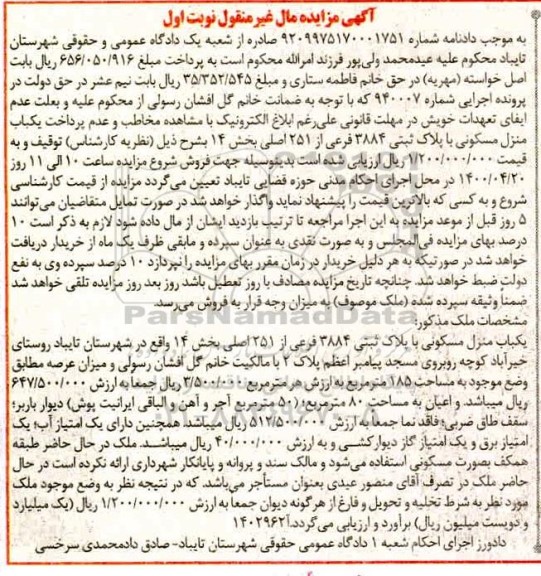 آگهی مزایده مال غیر منقول نوبت اول
به موجب دادنامه شماره ۹۲۰۹۹۷۵۱۷۰۰۰۱۷۵۱ صادره از شعبه یک دادگاه عمومی و حقوقی شهرستان
تایباد محکوم علیه عیدمحمد ولی‌پور فرزند امرالله محکوم است به پرداخت مبلغ ۶۵۶/۰۵۰/۹۱۶ ریال بابت
اصل خواسته (مهریه) در حق خانم فاطمه ستاری و مبلغ ۳۵/۳۵۲/۵۴۵ ریال بابت نیم عشر در حق دولت در
پرونده اجرایی شماره ۹۴۰۰۰۷ که با توجه به ضمانت خانم گل افشان رسولی از محکوم علیه و بعلت عدم
ایفای تعهدات خویش در مهلت قانونی علی‌رغم ابلاغ الکترونیک با مشاهده مخاطب و عدم پرداخت یکباب
منزل مسکونی با پلاک ثبتی ۳۸۸۴ فرعی از ۲۵۱ اصلی بخش ۱۴ بشرح ذیل (نظریه کارشناس) توقیف و به
قیمت ۱/۲۰۰/۰۰۰/۰۰۰ ریال ارزیابی شده است بدینوسیله جهت فروش شروع مزایده ساعت ۱۰ الی ۱۱ روز
۱۴۰۰/۰۴/۲۰ در محل اجرای احکام مدنی حوزه قضایی تایباد تعیین می‌گردد مزایده از قیمت کارشناسی
شروع و به کسی که بالاترین قیمت را پیشنهاد نماید واگذار خواهد شد در صورت تمایل متقاضیان می‌توانند
۵ روز قبل از موعد مزایده به این اجرا مراجعه تا ترتیب بازدید ایشان از مال داده شود لازم به ذکر است ۱۰
درصد بهای مزایده فی‌المجلس و به صورت نقدی به عنوان سپرده و مابقی ظرف یک ماه از خریدار دریافت
خواهد شد در صورتیکه به هر دلیل خریدار در زمان مقرر بهای مزایده را نپردازد ۱۰ درصد سپرده وی به نفع
دولت ضبط خواهد شد. چنانچه تاریخ مزایده مصادف با روز تعطیل باشد روز بعد روز مزایده تلقی خواهد شد
ضمناً وثیقه سپرده شده (ملک موصوف) به میزان وجه قرار به فروش می‌رسد.
مشخصات ملک مذکور:
یکباب منزل مسکونی با پلاک ثبتی ۳۸۸۴ فرعی از ۲۵۱ اصلی بخش ۱۴ واقع در شهرستان تایباد روستای
خیرآباد کوچه روبروی مسجد پیامبر اعظم پلاک ۲ با مالکیت خانم گل افشان رسولی و میزان عرصه مطابق
وضع موجود به مساحت ۱۸۵ مترمربع به ارزش هر مترمربع ۳/۵۰۰/۰۰۰ ریال جمعاً به ارزش ۶۴۷/۵۰۰/۰۰۰
ریال میباشد. و اعیان به مساحت ۸۰ مترمربع؛ (۵۰ مترمربع آجر و آهن و الباقی ایرانیت پوش) دیوار باربر؛
سقف طاق ضربی؛ فاقد نما جمعاً به ارزش ۵۱۲/۵۰۰/۰۰۰ ریال میباشد همچنین دارای یک امتیاز آب؛ یک
امتیاز برق و یک امتیاز گاز دیوارکشی و به ارزش ۴۰/۰۰۰/۰۰۰ ریال میباشد. ملک در حال حاضر طبقه
همکف بصورت مسکونی استفاده می‌شود و مالک سند و پروانه و پایانکار شهرداری ارائه نکرده است در حال
حاضر ملک در تصرف آقای منصور عیدی بعنوان مستأجر می‌باشد. که در نتیجه نظر به وضع موجود ملک
مورد نظر به شرط تخلیه و تحویل و فارغ از هرگونه دیوان جمعاً به ارزش ۱/۲۰۰/۰۰۰/۰۰۰ ریال (یک میلیارد
و دویست میلیون ریال) برآورد و ارزیابی می‌گردد.آ ۱۴۰۲۹۶۲
دادورز اجرای احکام شعبه ۱ دادگاه عمومی حقوقی شهرستان تایباد- صادق دادمحمدی سرخسی
ParsNamadData